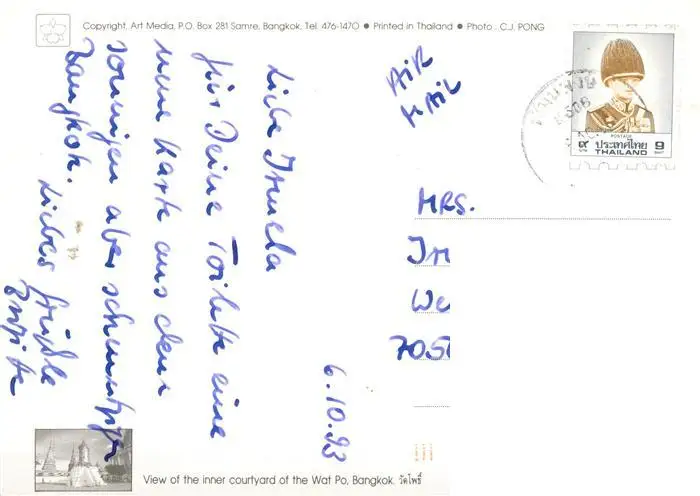 Copyright, Art Media, P.O. Box 281 Samre, Bangkok. Tel. 476-1470 ● Printed in Thailand ● Photo : C.J. PONG
6.10.93
Liebe
für Deine Toilette eine
neue Karte aus dem
sonnigen aber schmutzigen
Bangkok.
Liebe Grüße
AIR
MAIL
POSTAGE
๙ ประเทศไทย 9
บาท THAILAND BAHT
MRS.
We
705
View of the inner courtyard of the Wat Po, Bangkok. วัดโพธิ์